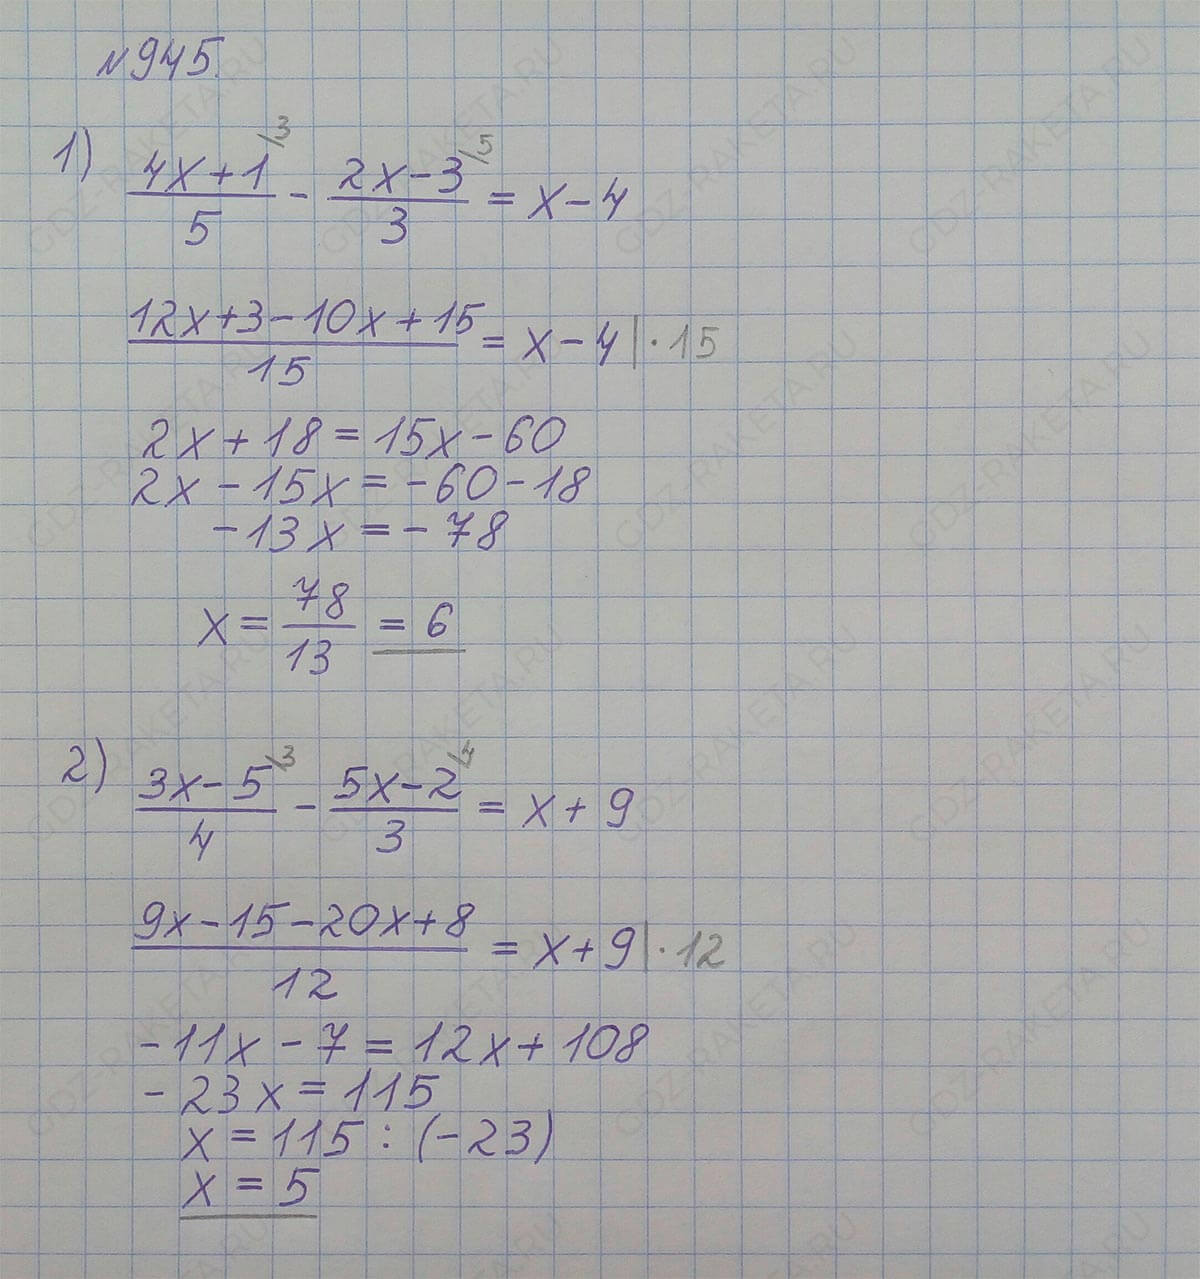 №945.
1) (4x+1)/5 \3 - (2x-3)/3 \5 = x-4
(12x+3-10x+15)/15 = x-4 |·15
2x+18=15x-60
2x-15x=-60-18
-13x=-78
x=78/13=6
2) (3x-5)/4 \3 - (5x-2)/3 \4 = x+9
(9x-15-20x+8)/12 = x+9 |·12
-11x-7=12x+108
-23x=115
x=115:(-23)
x=5
GDZ-RAKETA.RU